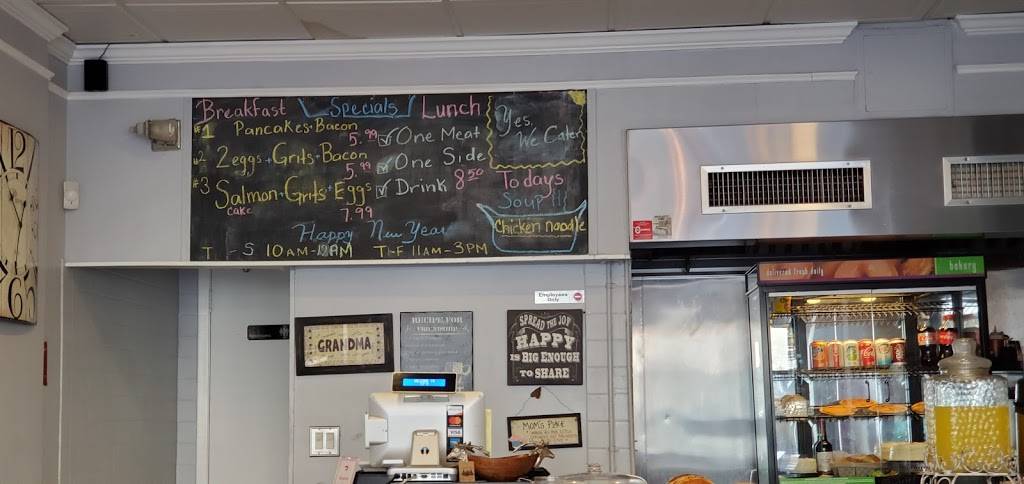 Breakfast Specials Lunch
#1 Pancakes+Bacon
5.99
#2 2eggs+Grits+Bacon
5.99
#3 Salmon+Grits+Eggs
Cake
7.99
One Meat
One Side
Drink 8.50
Yes,
We Cater
Todays
Soup!!!
Chicken noodle
Happy New Year
T -S 10AM- AM T-F 11AM-3PM
Employees
Only
GRANDMA
RECIPE FOR
SPREAD THE JOY
HAPPY
IS BIG ENOUGH
TO SHARE
MOM'S
VISA
delivered fresh daily
bakery